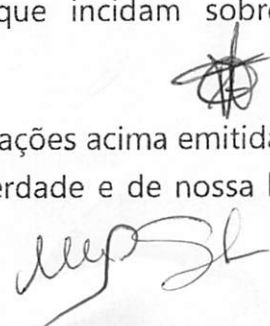 que incidam sobre
ações acima emitida
erdade e de nossa